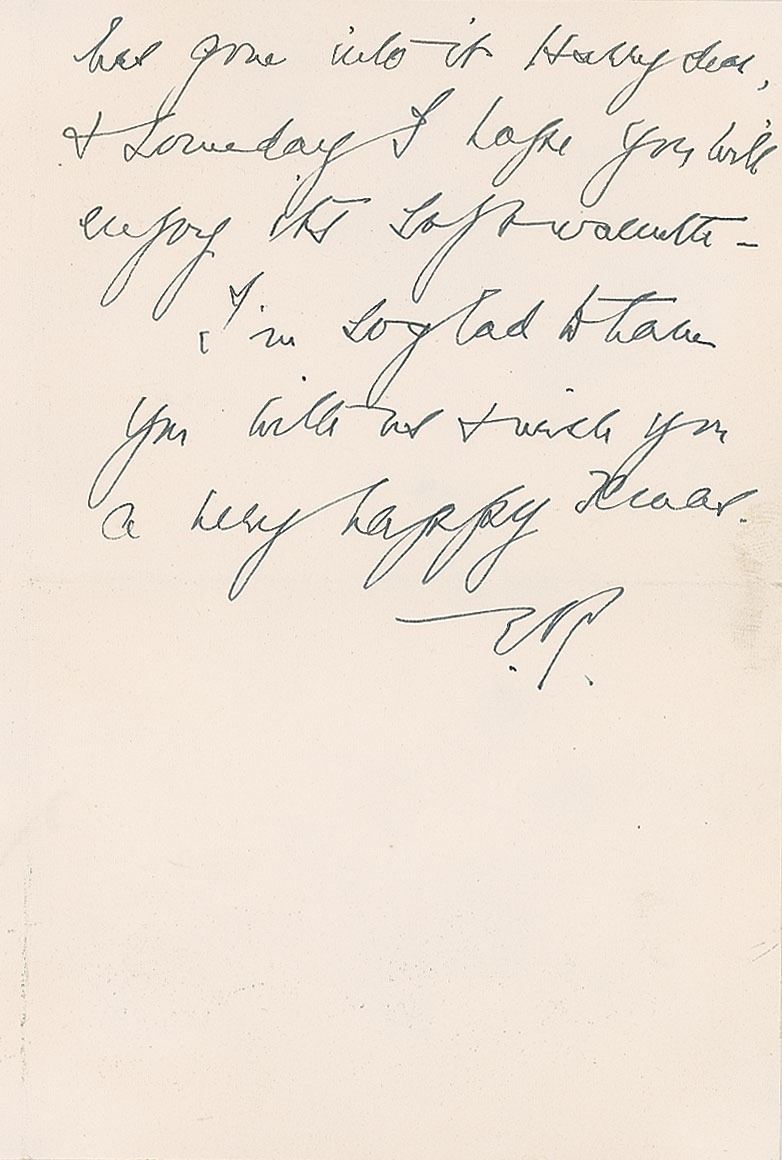 has gone into it Harry dear,
& someday I hope you will
enjoy its soft warmth –
I'm so glad to have
you with us & wish you
a very happy Xmas.
— E.R.